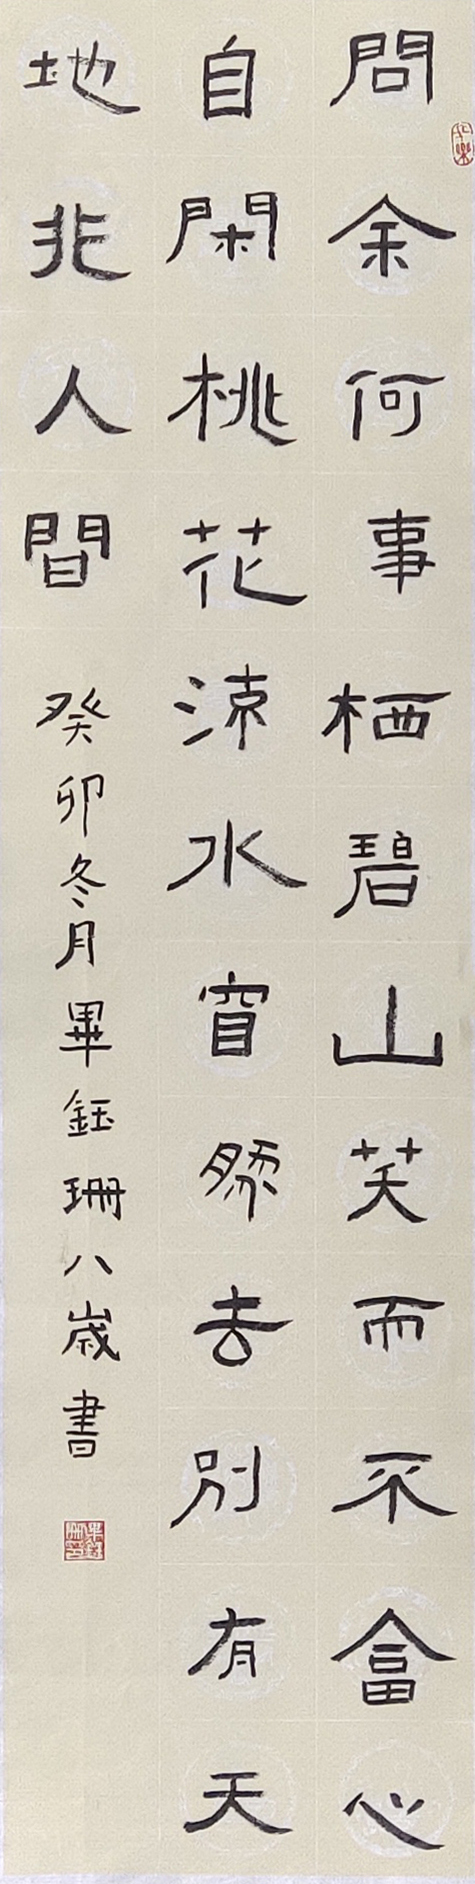 問余何事栖碧山笑而不畣心
自閑桃花流水窅然去別有天
地非人間
癸卯冬月畢鈺珊八歲書